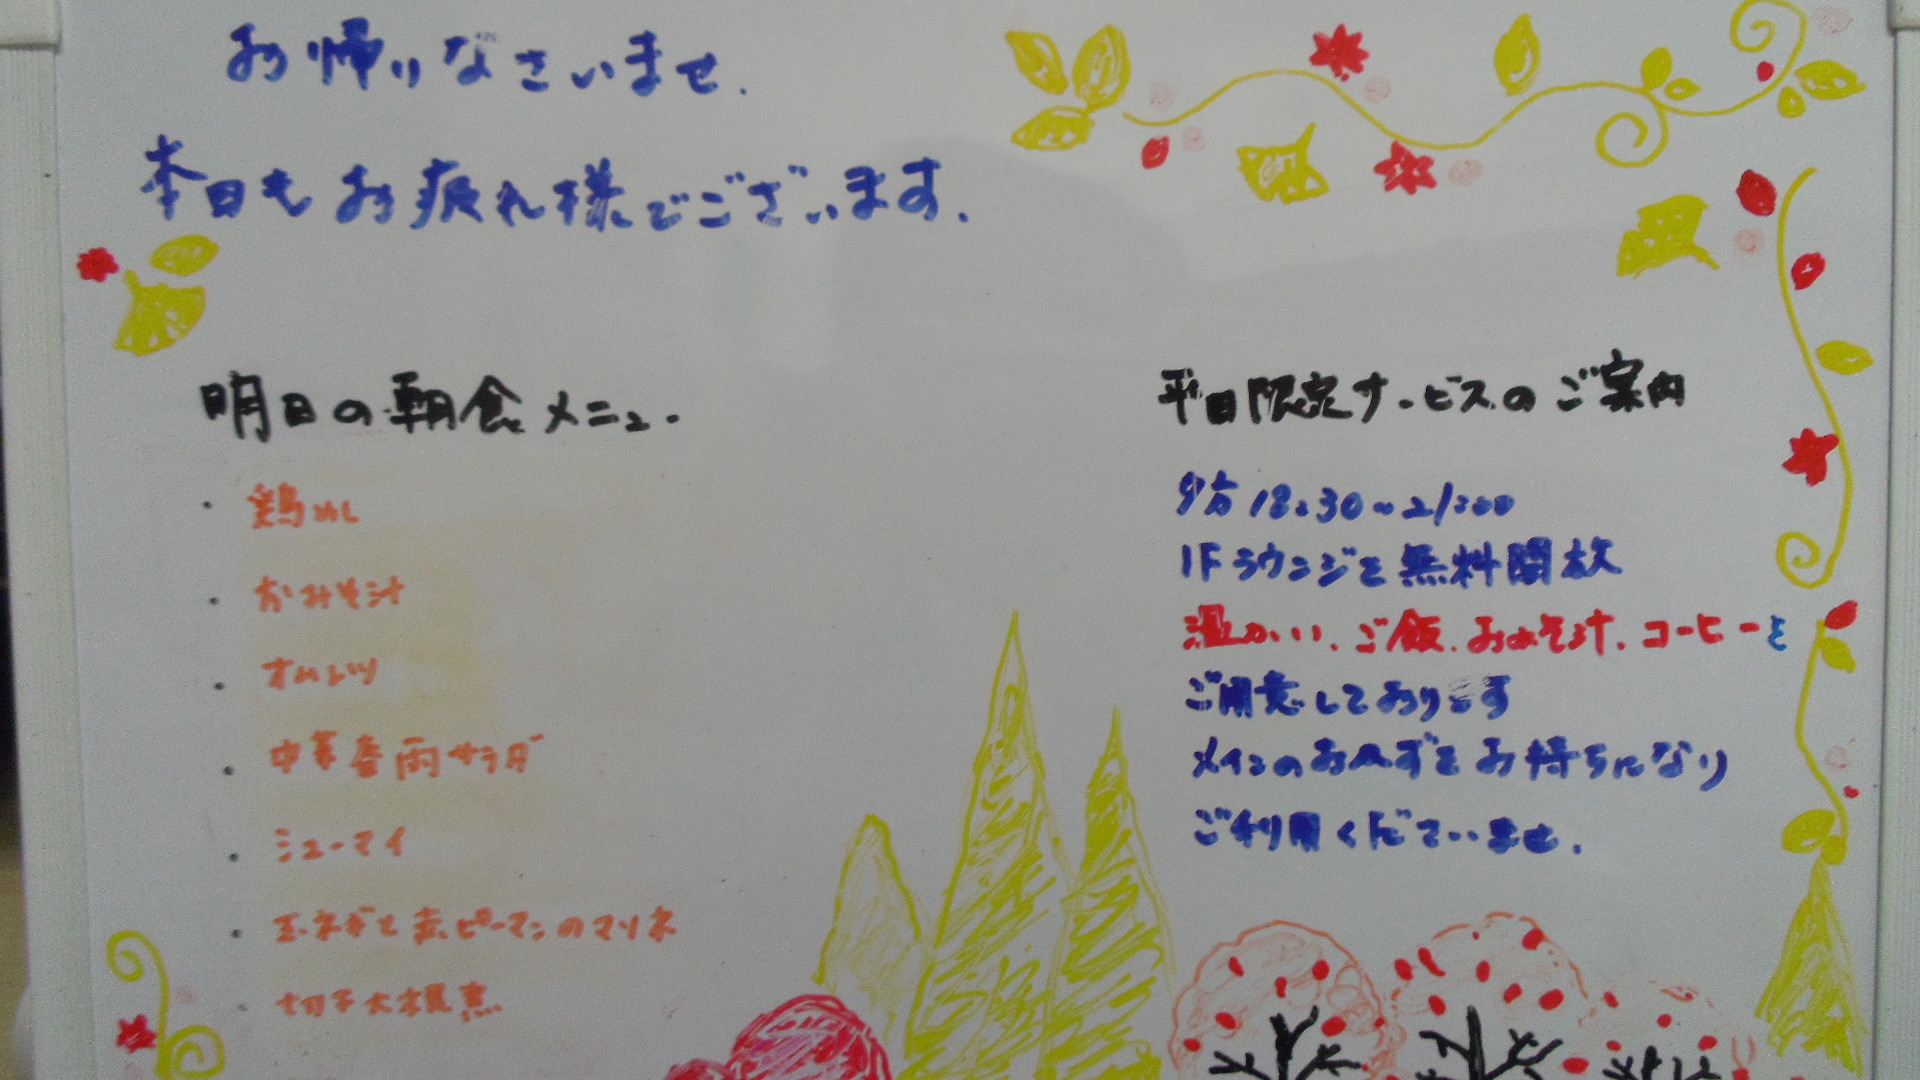 お帰りなさいませ.
本日もお疲れ様でございます.
明日の朝食メニュー
・鶏めし
・おみそ汁
・オムレツ
・中華春雨サラダ
・シューマイ
・玉ネギと赤ピーマンのマリネ
・切干大根煮
平日限定サービスのご案内
夕方 18:30~21:00
1Fラウンジを無料開放
温かい、ご飯、おみそ汁、コーヒーを
ご用意しております
メインのおかずをお持ちになり
ご利用くださいませ.